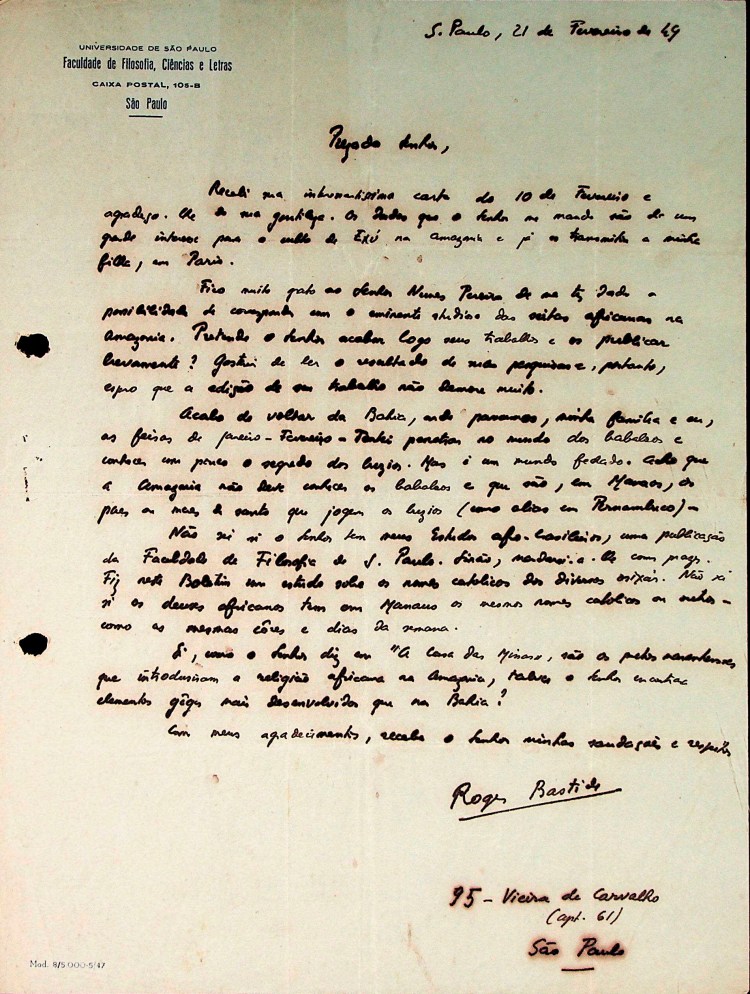 S. Paulo, 21 de Fevereiro de 49
UNIVERSIDADE DE SÃO PAULO
Faculdade de Filosofia, Ciências e Letras
CAIXA POSTAL, 105-B
São Paulo
Prezado Senhor,
Recebi sua interessantissima carta do 10 de Fevereiro e
agradeço-lhe de sua gentileza. Os dados que o Senhor me manda são de um
grande interesse para o culto de Exú na Amazonia e já os transmiti a minha
filha, em Paris.
Fico muito grato ao Senhor Nunes Pereira de me ter dado a
possibilidade de corresponder com o eminente studioso das seitas africanas na
Amazonia. Pretende o Senhor acabar logo seus trabalhos e os publicar
brevamente? Gostei de ler o resultado de suas pesquisas e, portanto,
espero que a edição de seu trabalho não demore muito.
Acabo de voltar da Bahia, onde passamos, minha familia e eu,
as feiras de janeiro-Fevereiro - Tentei penetrar no mundo dos babalaos e
conhecer um pouco o segredo dos buzios. Mas é um mundo fechado. Acho que
a Amazonia não deve conhecer os babalaos e que são, em Manaos, os
paes ou maes de santo que jogam os buzios (como alias em Pernambuco) -
Não sei si o Senhor tem meus Estudos afro-brasileiros, uma publicação
da Faculdade de Filosofia de S. Paulo. Sinão, mandarei-a-lhe com prazer.
Fiz neste Boletim um estudo sobre os nomes catolicos dos diversos orixás. Não sei
si os deuses africanos tem em Manaus os mesmos nomes catolicos ou outros -
como as mesmas côres e dias da semana.
Si, como o Senhor diz em "A Casa das Minas", são os pretos maranhenses
que introdusiram a religião africana na Amazonia, talves o Senhor encontrar
elementos gêges mais desenvolvidos que na Bahia?
Com meus agradecimentos, receba o Senhor minhas saudações e respeitos
Roger Bastide
95 - Vieira de Carvalho
(apt. 61)
São Paulo
Mod. 8/5.000-5/47